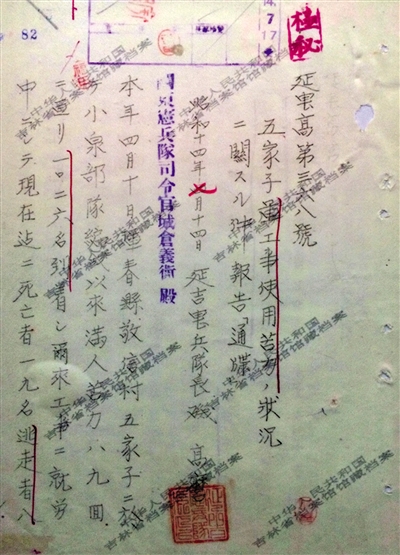 極秘
延憲高第三六八號
五家子軍工事使用苦力ノ狀況
ニ關スル件 報告「通牒」
昭和十四年七月十四日 延吉憲兵隊長 磯 高麿
關東憲兵隊司令官城倉義衛 殿
本年四月十日琿春縣敬信村五家子ニ於
ケル小泉部隊 以來滿人苦力八九回
ニ亘リ一〇二六名到着シ爾來工事ニ就勞
中ニシテ現在迄ニ死亡者一九名逃走者八
14.
7
17
82
中华人民共和国
吉林省档案馆馆藏档案